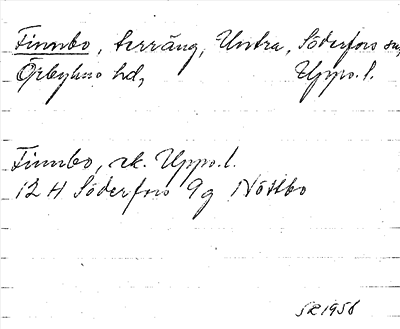 Finnbo, terräng, Untra, Söderfors sn,
Örbyhus hd, Upps. l.
Finnbo, ek. Upps. l.
12 H Söderfors 9g Nöttbo
SR 1956